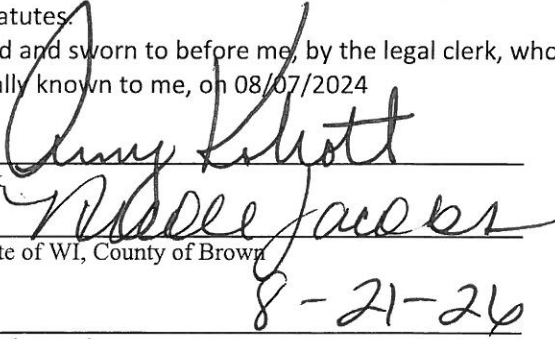 atutes.
d and sworn to before me, by the legal clerk, who
ally known to me, on 08/07/2024
Amy
Nicole Jacobs
te of WI, County of Brown
8-21-26